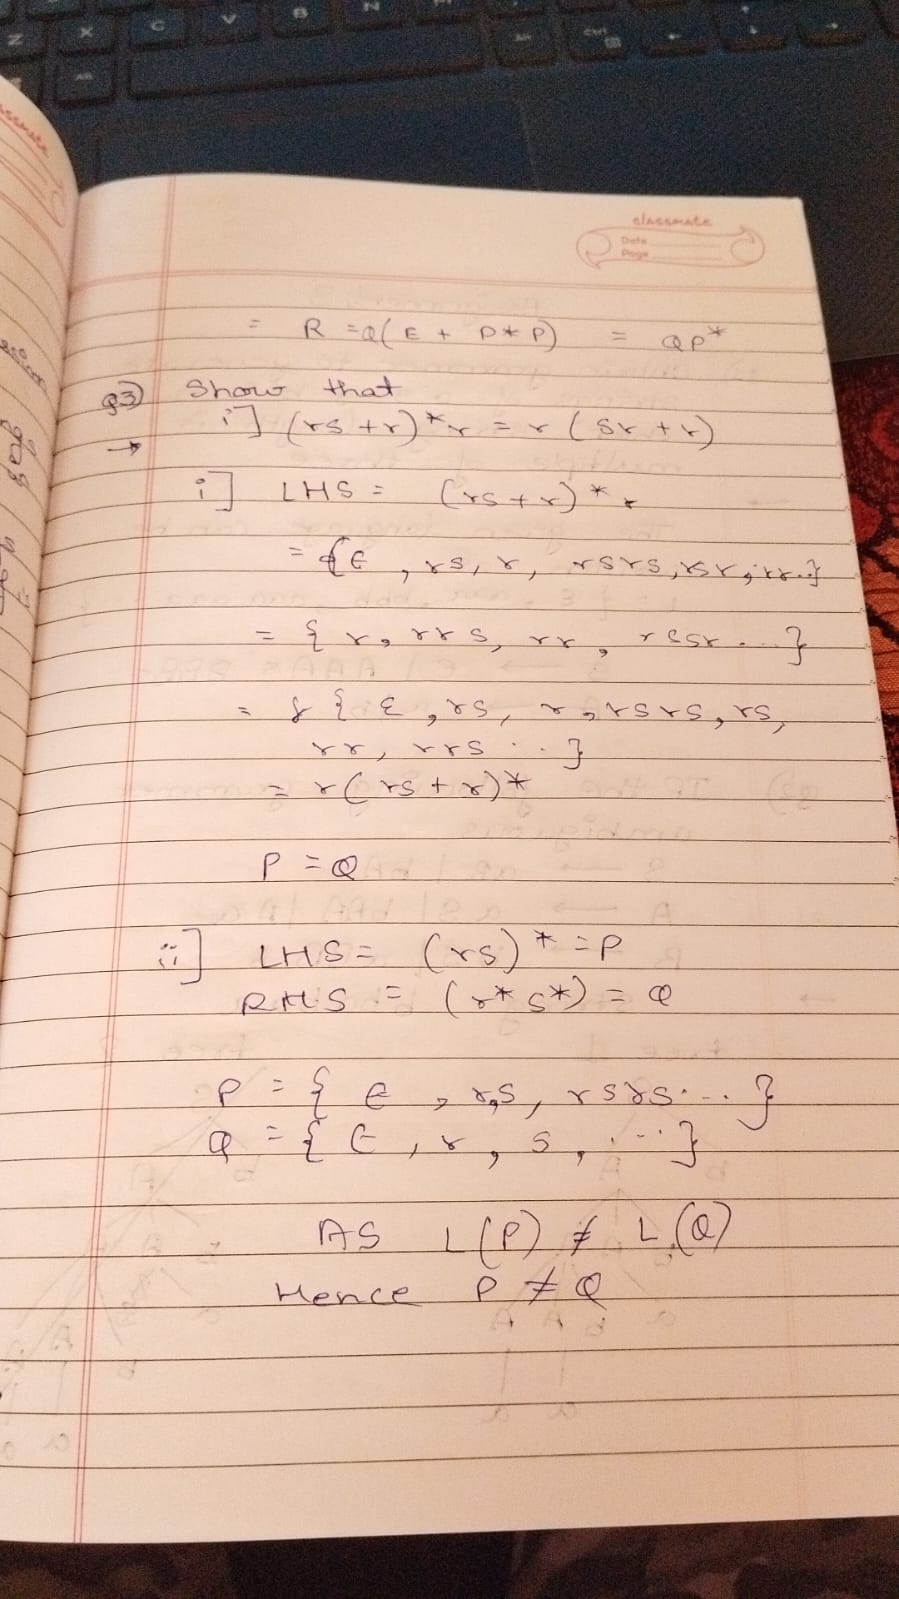 classmate
Date
Page
= R = Q(E + P*P) = QP*
Q3) Show that
i] (rs + r)*r = r(sr + r)
i] LHS = (rs + r)*r
= {E, rs, r, rsrs, rsr, rr..}
= {r, rrs, rr, ...}
= r{E, rs, r, rsrs, rs,
rr, rrs ...}
= r(rs + r)*
P = Q
ii] LHS = (rs)* = P
RHS = (r*s*) = Q
P = {E, r,s, rsrs...}
Q = {E, r, s, ...}
AS L(P) ≠ L(Q)
Hence P ≠ Q